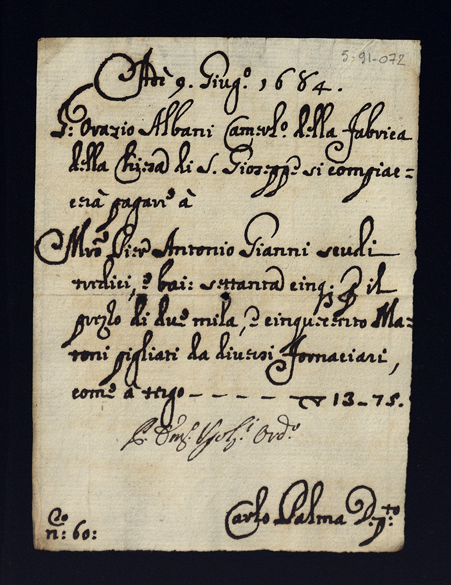 5-91-072
Adi 9. Giug.º 1684.
S: Orazio Albani Camerl.º della fabrica
della Chiesa di S. Gioseppe si compiac=
cerà pagare à
Mrô Pier Antonio Gianni scudi
tredici, e bai: settanta cinq: p il
prezzo di due mila, e cinquecento Ma=
toni pigliati da diversi fornaciari,
come à tergo - - - - - - ▽ 13-75.
Ord.º
Carlo Palma D.to
Co
n: 60: